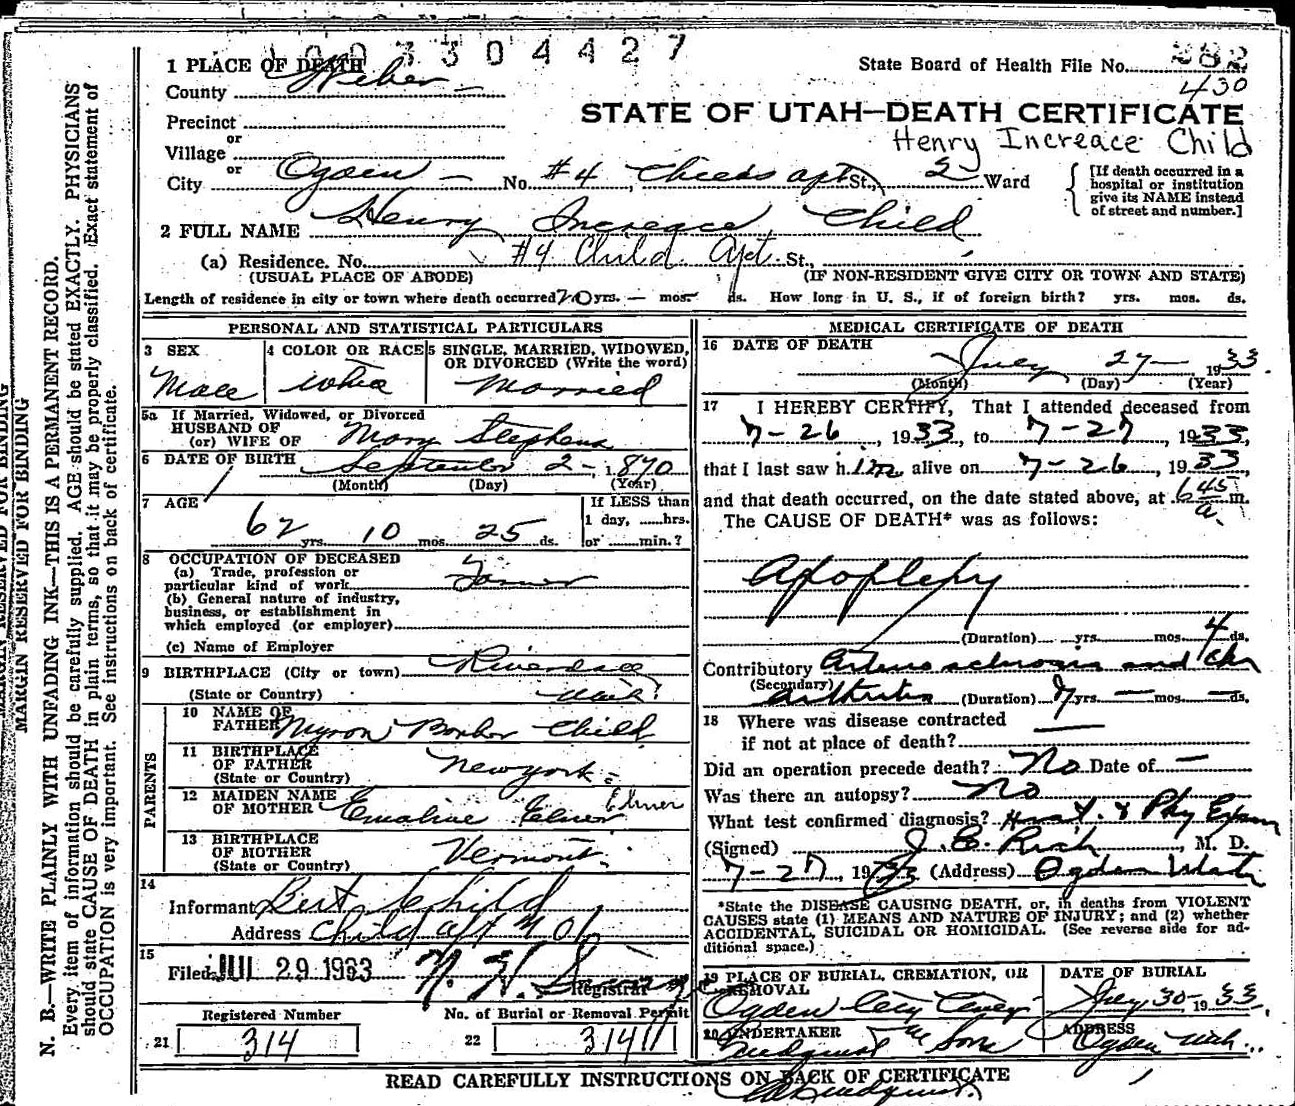 1003304427
1 PLACE OF DEATH
County Weber
State Board of Health File No. 282
430
STATE OF UTAH—DEATH CERTIFICATE
Henry Increace Child
Precinct
or
Village
or
City Ogden No. #4 Childs apt St., 2 Ward
[If death occurred in a hospital or institution give its NAME instead of street and number.]
2 FULL NAME Henry Increace Child
(a) Residence. No. #4 Child Apt. St.,
(USUAL PLACE OF ABODE) (IF NON-RESIDENT GIVE CITY OR TOWN AND STATE)
Length of residence in city or town where death occurred 20 yrs. — mos. ds. How long in U. S., if of foreign birth? yrs. mos. ds.
PERSONAL AND STATISTICAL PARTICULARS
3 SEX 4 COLOR OR RACE 5 SINGLE, MARRIED, WIDOWED, OR DIVORCED (Write the word)
Male White Married
5a If Married, Widowed, or Divorced
HUSBAND OF
(or) WIFE OF Mary Stephens
6 DATE OF BIRTH September 2 - 1870
(Month) (Day) (Year)
7 AGE If LESS than
1 day, ......hrs.
62 yrs. 10 mos. 25 ds. or ......min.?
8 OCCUPATION OF DECEASED
(a) Trade, profession or
particular kind of work
(b) General nature of industry,
business, or establishment in
which employed (or employer)
(c) Name of Employer
9 BIRTHPLACE (City or town) Riverdale
(State or Country) Utah
PARENTS
10 NAME OF
FATHER Myron Barber Child
11 BIRTHPLACE
OF FATHER New york
(State or Country)
12 MAIDEN NAME
OF MOTHER Emaline Elmer Elmer
13 BIRTHPLACE
OF MOTHER Vermont
(State or Country)
14
Informant Bert Child
Address Child apt
15
Filed JUL 29 1933 Registrar
Registered Number No. of Burial or Removal Permit
21 314 22 314
MEDICAL CERTIFICATE OF DEATH
16 DATE OF DEATH
July 27 — 1933
(Month) (Day) (Year)
17 I HEREBY CERTIFY, That I attended deceased from
7-26, 1933, to 7-27, 1933,
that I last saw him alive on 7-26, 1933,
and that death occurred, on the date stated above, at 6 45 a. m.
The CAUSE OF DEATH* was as follows:
Apoplexy
(Duration) yrs. mos. 4 ds.
Contributory Arterio sclerosis and Chr
(Secondary)
arthritis (Duration) 7 yrs. — mos. — ds.
18 Where was disease contracted
if not at place of death? —
Did an operation precede death? No Date of —
Was there an autopsy? No
What test confirmed diagnosis? Hist. & Phy Exam
(Signed) J. E. Rich, M. D.
7-27, 1933 (Address) Ogden Utah
*State the DISEASE CAUSING DEATH, or, in deaths from VIOLENT
CAUSES state (1) MEANS AND NATURE OF INJURY; and (2) whether
ACCIDENTAL, SUICIDAL OR HOMICIDAL. (See reverse side for ad-
ditional space.)
19 PLACE OF BURIAL, CREMATION, OR REMOVAL DATE OF BURIAL
Ogden City July 30 - 1933
20 UNDERTAKER ADDRESS
Lindquist & Sons Ogden Utah
READ CAREFULLY INSTRUCTIONS ON BACK OF CERTIFICATE
MARGIN RESERVED FOR BINDING
MARGIN RESERVED FOR BINDING
N. B.—WRITE PLAINLY WITH UNFADING INK—THIS IS A PERMANENT RECORD.
Every item of information should be carefully supplied. AGE should be stated EXACTLY. PHYSICIANS
should state CAUSE OF DEATH in plain terms, so that it may be properly classified. Exact statement of
OCCUPATION is very important. See instructions on back of certificate.